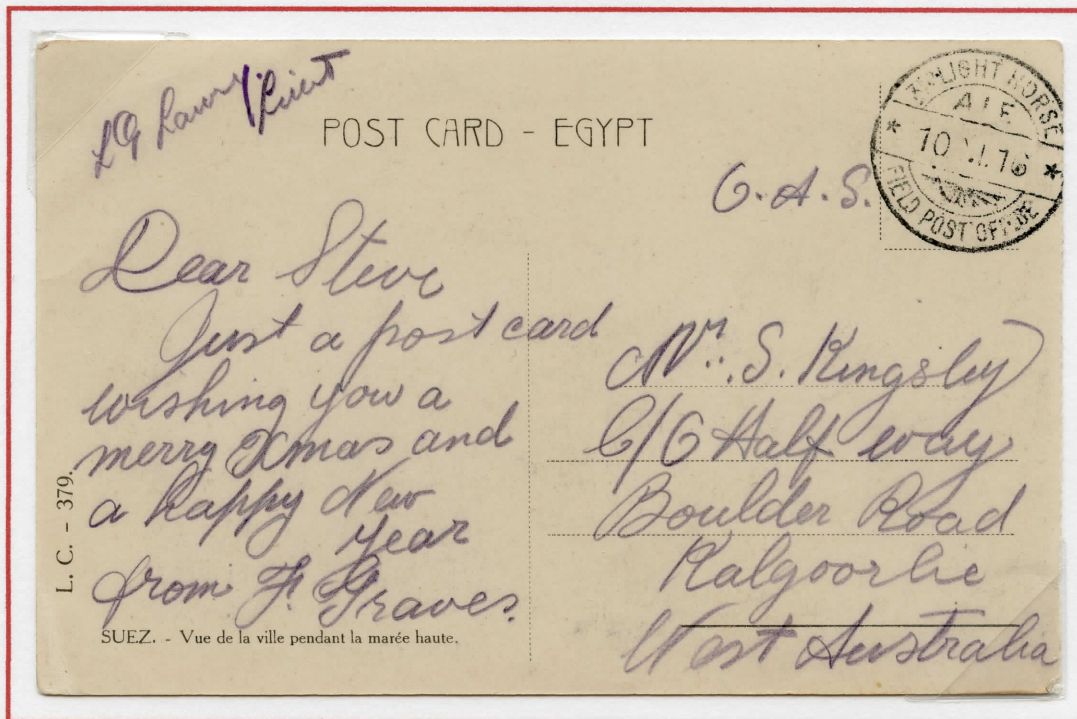 Lieut
POST CARD - EGYPT
LIGHT HORSE
A.I.F.
* 10 16 *
FIELD POST OFFICE
O.A.S.
Dear Steve
Just a post card
wishing you a
merry Xmas and
a happy New
Year
from F. Graves.
Mr. S. Kingsley
C/O Half way
Boulder Road
Kalgoorlie
West Australia
L. C. - 379.
SUEZ. - Vue de la ville pendant la marée haute.